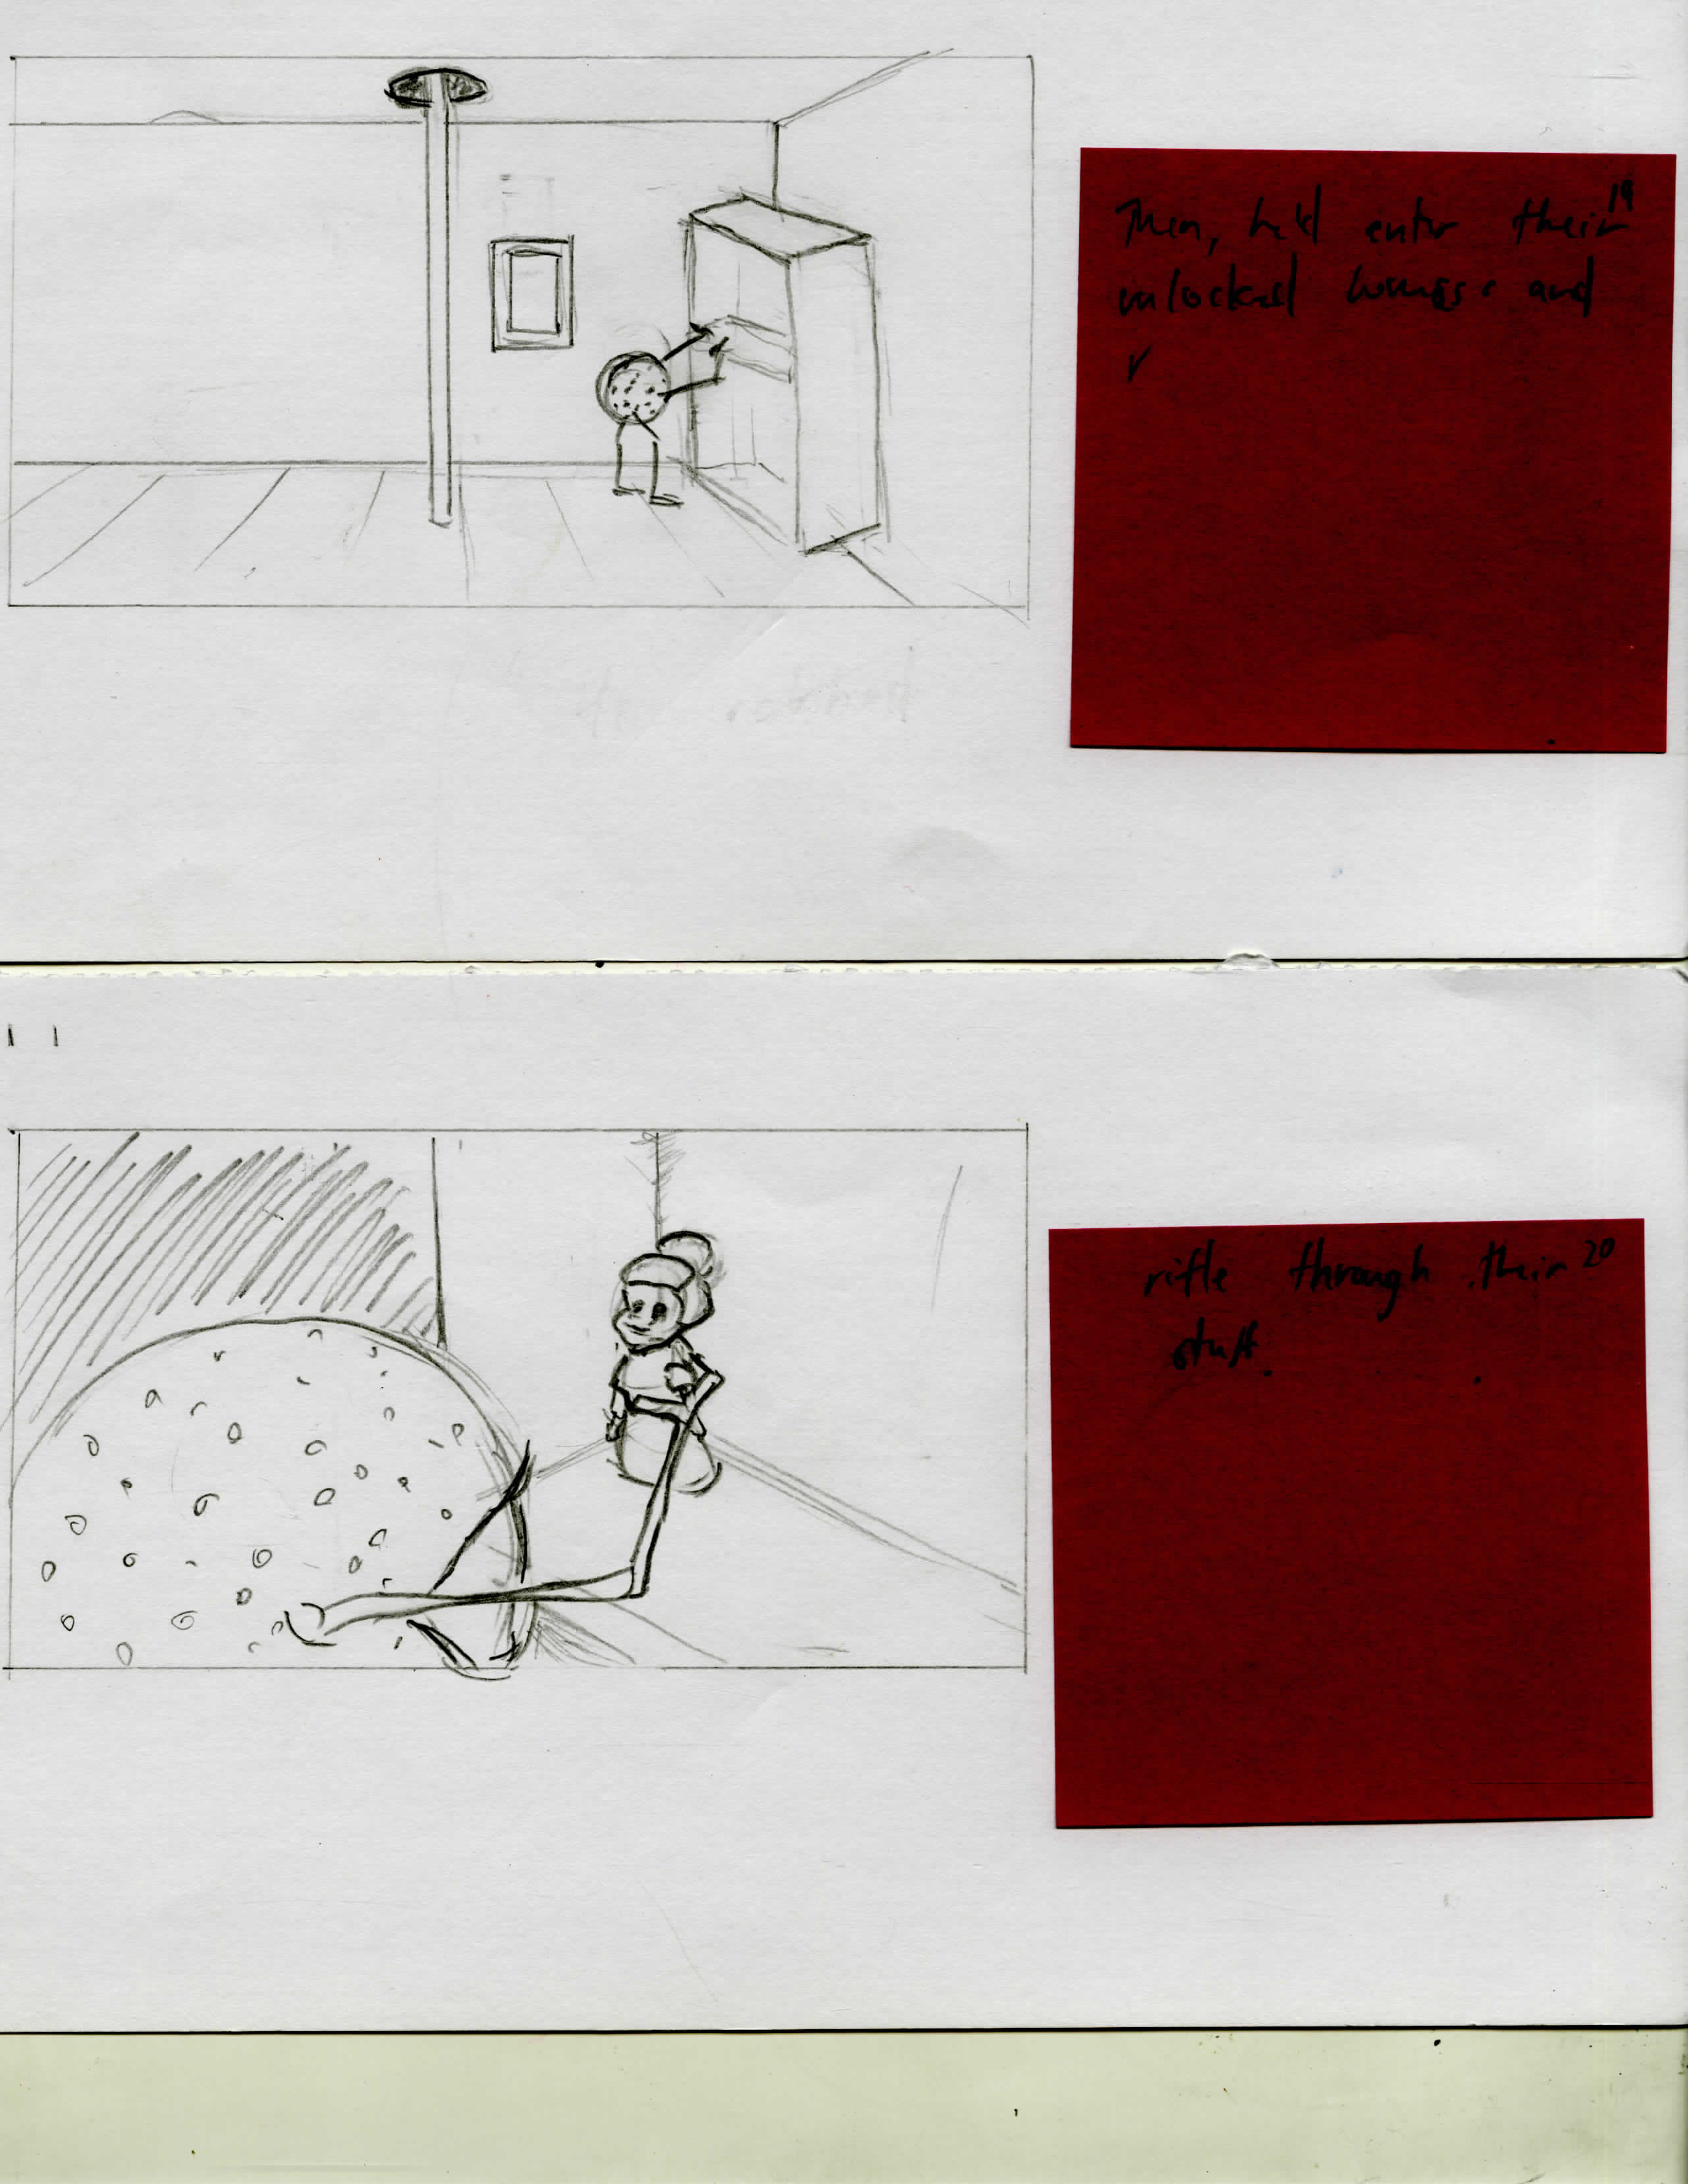 19
Then, he'd enter their
unlocked houses and
r
rifle through their 20
stuff.